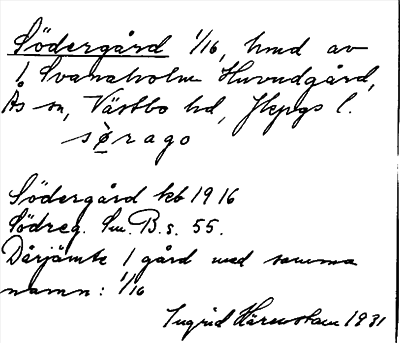 Södergård 1/16, hmd av
1 Svanaholm Huvudgård,
Ås sn, Västbo hd, Jkpgs l.
sø̀rago
Södergård kb 1916
Södreg. Sm. B. s. 55.
Därjämte 1 gård med samma
namn: 1/16
Ingrid Härenstam 1931